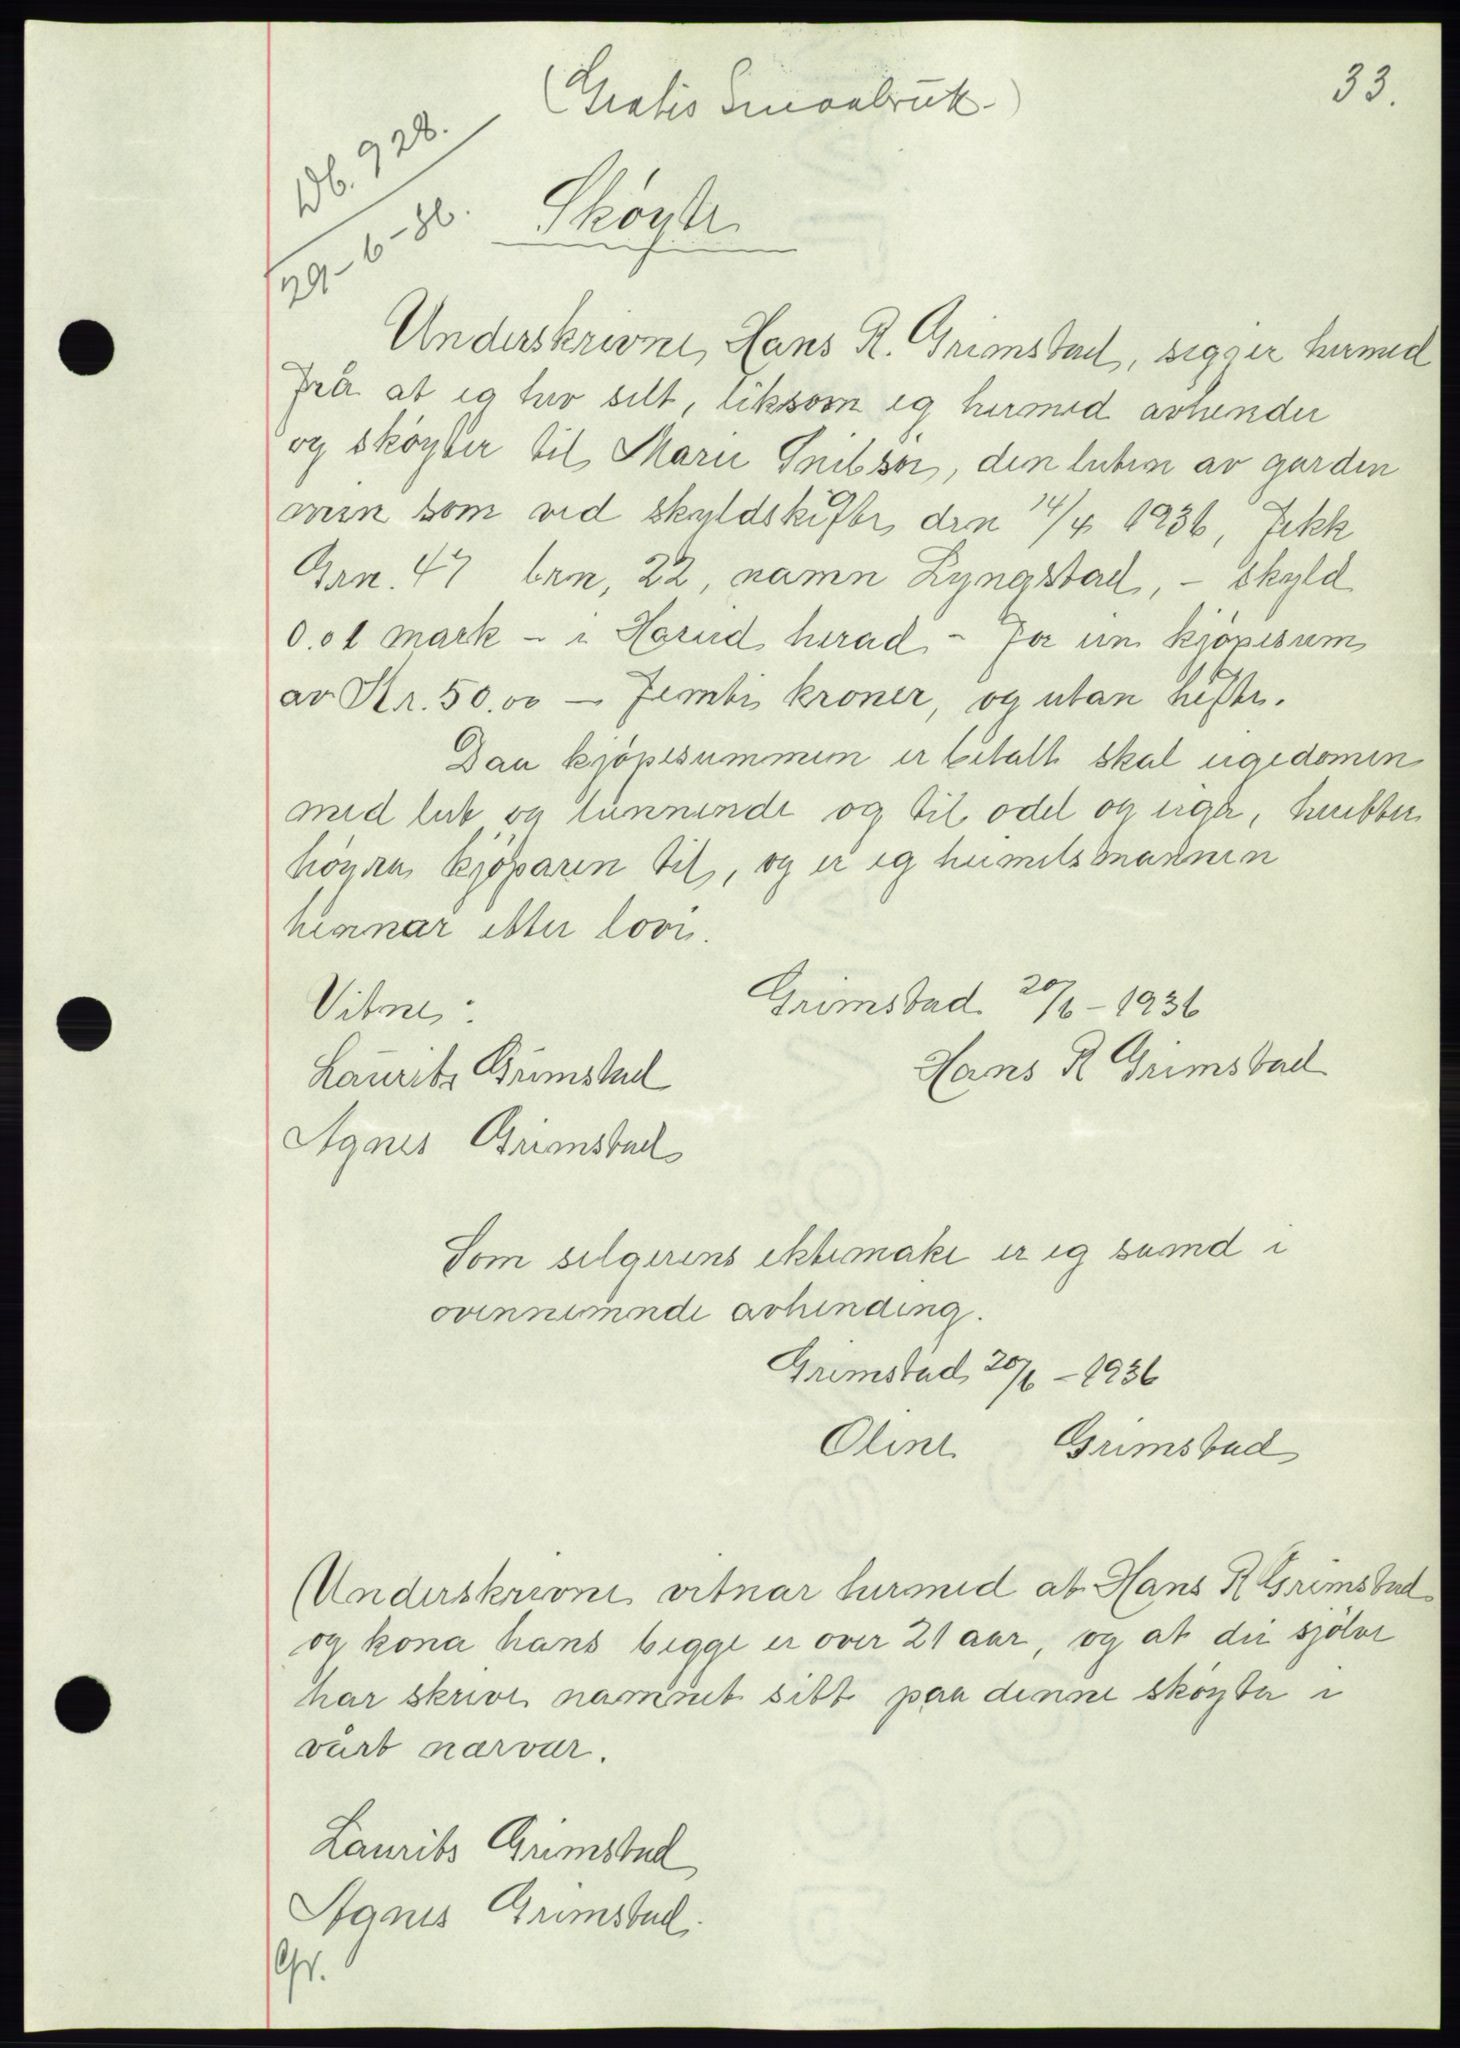 33.
(Gratis Smaabruk.)
Db. 928.
29-6-36.
Skøyte
Underskrivne, Hans R. Grimstad, segjer hermed
frå at eg hev selt, liksom eg hermed avhender
og skøyter til Marie Snibsør, den luten av garden
min som ved skyldskifte, den 14/4 1936, fekk
Grn. 47 brn, 22, namn Lyngstad, - skyld
0.01 mark - i Hareid herad - for ein kjøpesum
av Kr. 50.00 - Femti kroner, og utan hefte.
Daa kjøpesummen er betalt skal eigedomen
med lut og lunnende og til odel og eige, heretter
høyra kjøparen til, og er eg heimelsmannen
hennar etter lovi.
Vitne:
Grimstad 20/6-1936
Laurits Grimstad
Hans R Grimstad
Agnes Grimstad
Som selgerens ektemake er eg samd i
ovennemnde avhending.
Grimstad 20/6-1936
Oline Grimstad
Underskrivne vitnar hermed at Hans R Grimstad
og kona hans begge er over 21 aar, og at dei sjølve
har skrive namnet sitt paa denne skøyta i
vårt nærvær.
Laurits Grimstad
Agnes Grimstad.
Gr.